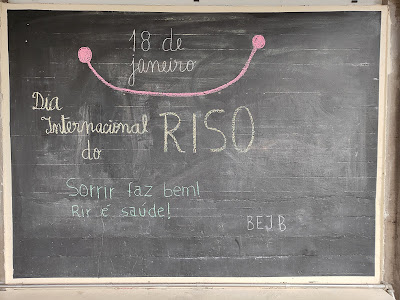 18 de
janeiro
Dia
Internacional
do
RISO
Sorrir faz bem!
Rir é saude!
BEJB